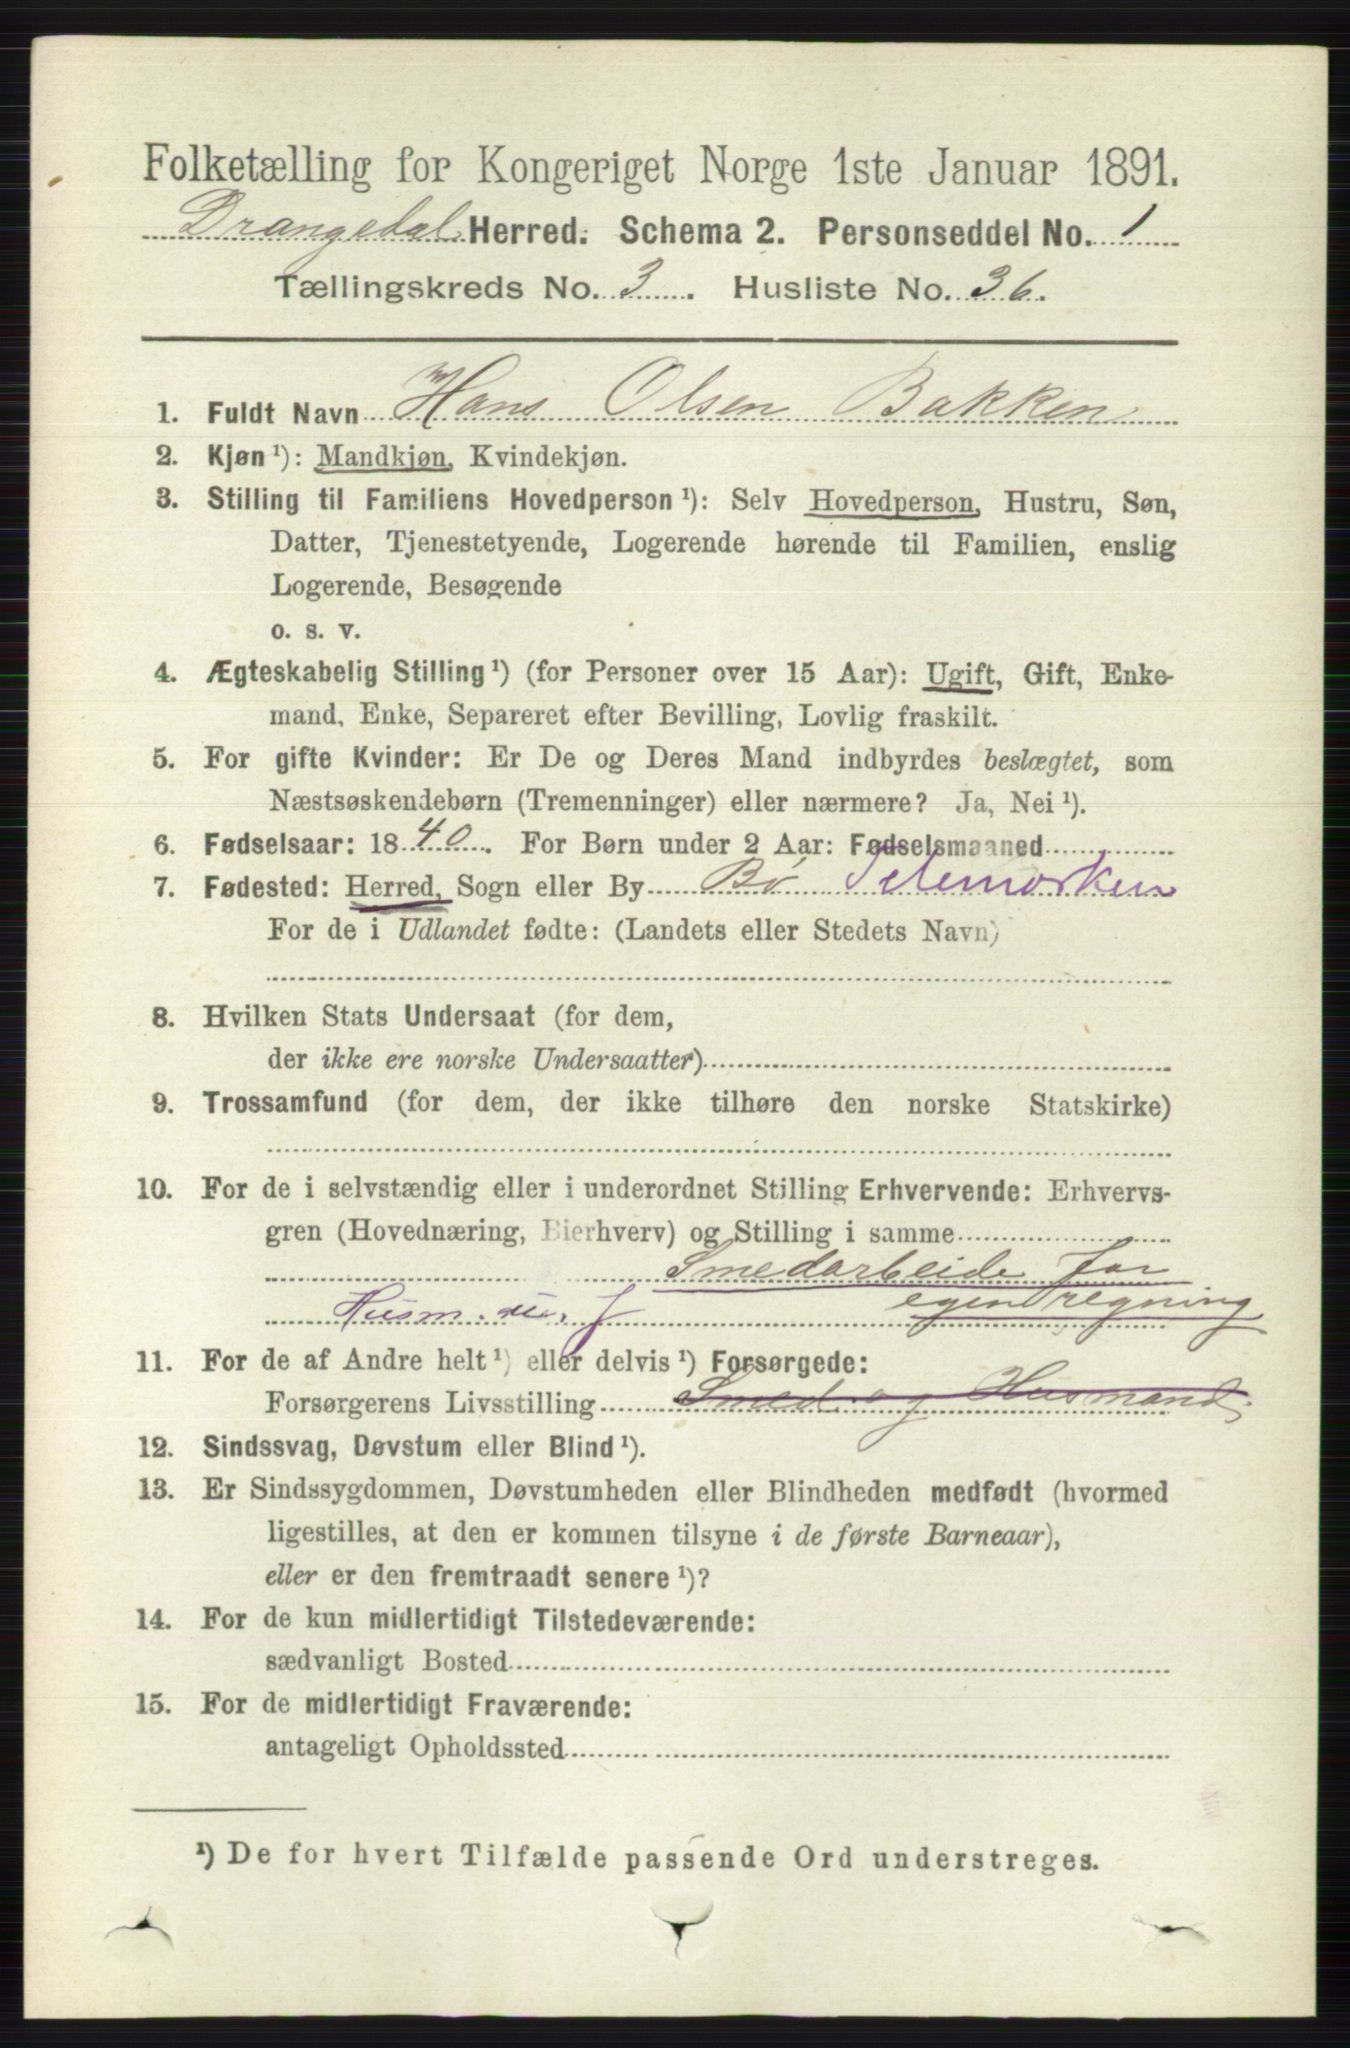 Folketælling for Kongeriget Norge 1ste Januar 1891.
Drangedal Herred. Schema 2. Personseddel No. 1
Tællingskreds No. 3. Husliste No. 36.
1. Fuldt Navn Hans Olsen Bakken
2. Kjøn ¹): Mandkjøn, Kvindekjøn.
3. Stilling til Familiens Hovedperson ¹): Selv Hovedperson, Hustru, Søn,
Datter, Tjenestetyende, Logerende hørende til Familien, enslig
Logerende, Besøgende
o. s. v.
4. Ægteskabelig Stilling ¹) (for Personer over 15 Aar): Ugift, Gift, Enke-
mand, Enke, Separeret efter Bevilling, Lovlig fraskilt.
5. For gifte Kvinder: Er De og Deres Mand indbyrdes beslægtet, som
Næstsøskendebørn (Tremenninger) eller nærmere? Ja, Nei ¹).
6. Fødselsaar: 1840. For Børn under 2 Aar: Fødselsmaaned
7. Fødested: Herred, Sogn eller By Bø Telemarken
For de i Udlandet fødte: (Landets eller Stedets Navn)
8. Hvilken Stats Undersaat (for dem,
der ikke ere norske Undersaatter)
9. Trossamfund (for dem, der ikke tilhøre den norske Statskirke)
10. For de i selvstændig eller i underordnet Stilling Erhvervende: Erhvervs-
gren (Hovednæring, Bierhverv) og Stilling i samme
Smedarbeide for
Husm. m. J egen regning
11. For de af Andre helt ¹) eller delvis ¹) Forsørgede:
Forsørgerens Livsstilling Smed og Husmand
12. Sindssvag, Døvstum eller Blind ¹).
13. Er Sindssygdommen, Døvstumheden eller Blindheden medfødt (hvormed
ligestilles, at den er kommen tilsyne i de første Barneaar),
eller er den fremtraadt senere ¹)?
14. For de kun midlertidigt Tilstedeværende:
sædvanligt Bosted
15. For de midlertidigt Fraværende:
antageligt Opholdssted
¹) De for hvert Tilfælde passende Ord understreges.